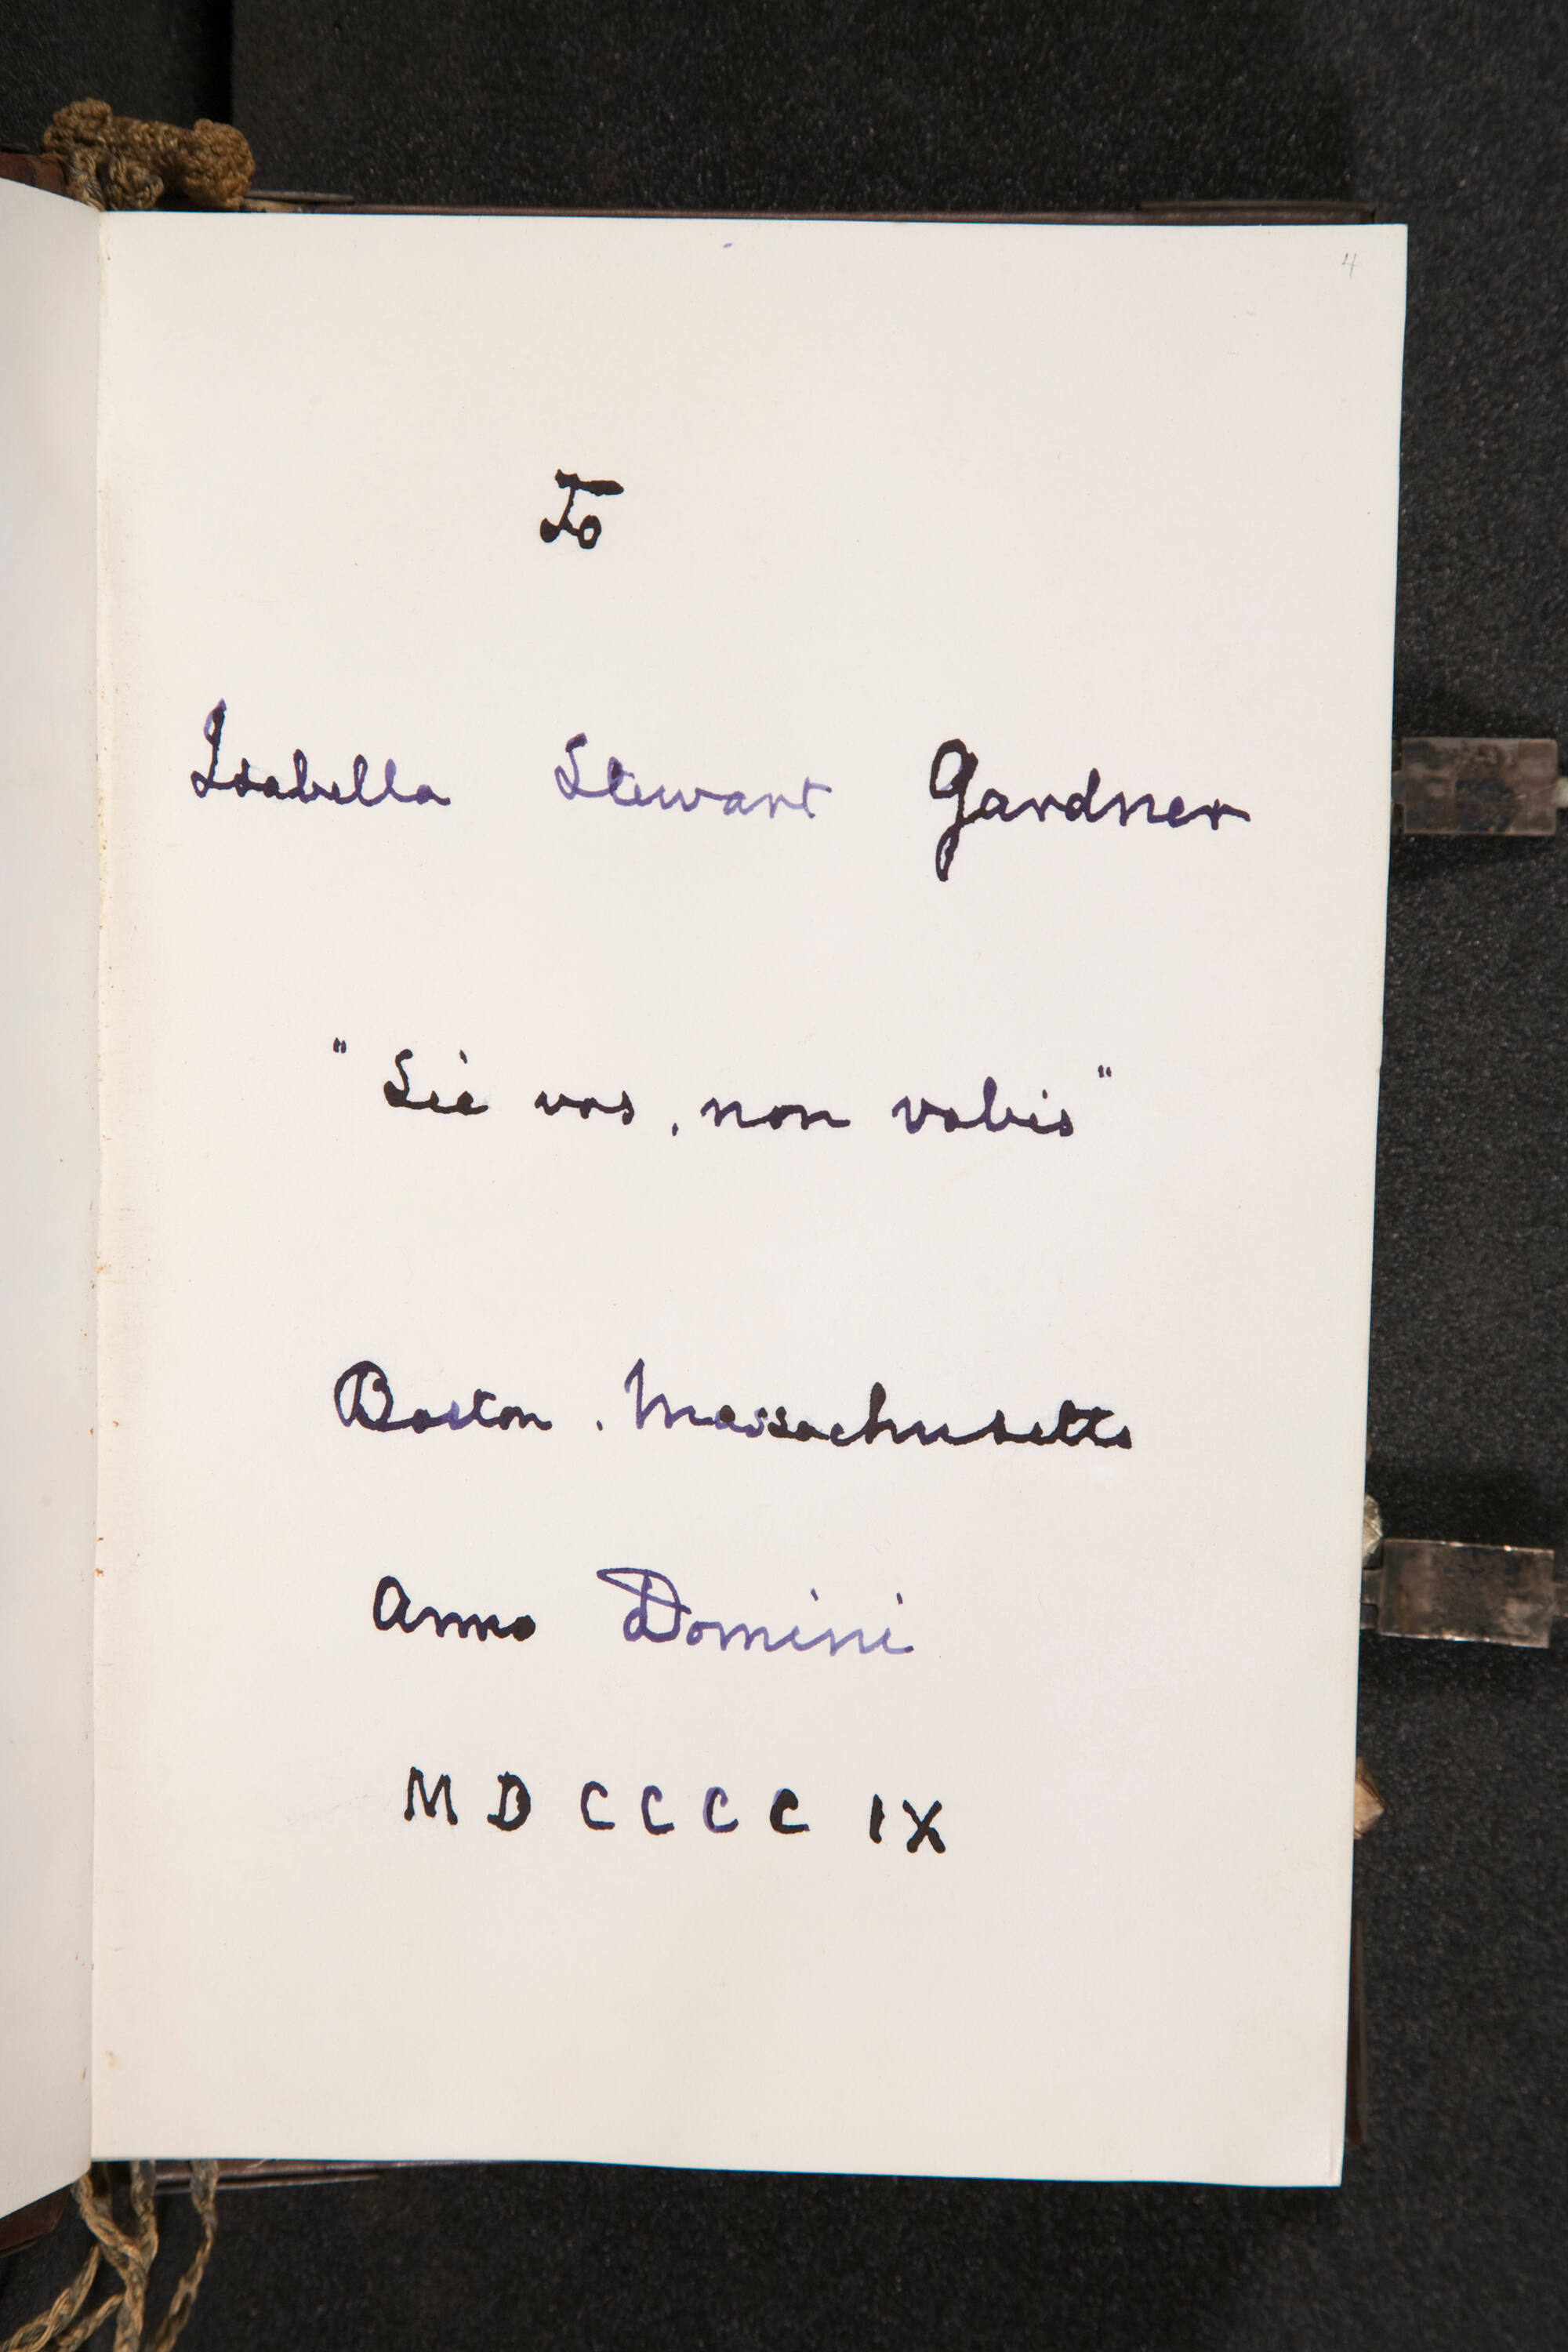 4
To
Isabella Stewart Gardner
"Sic vos, non vobis"
Boston. Massachusetts
Anno Domini
MDCCCC IX